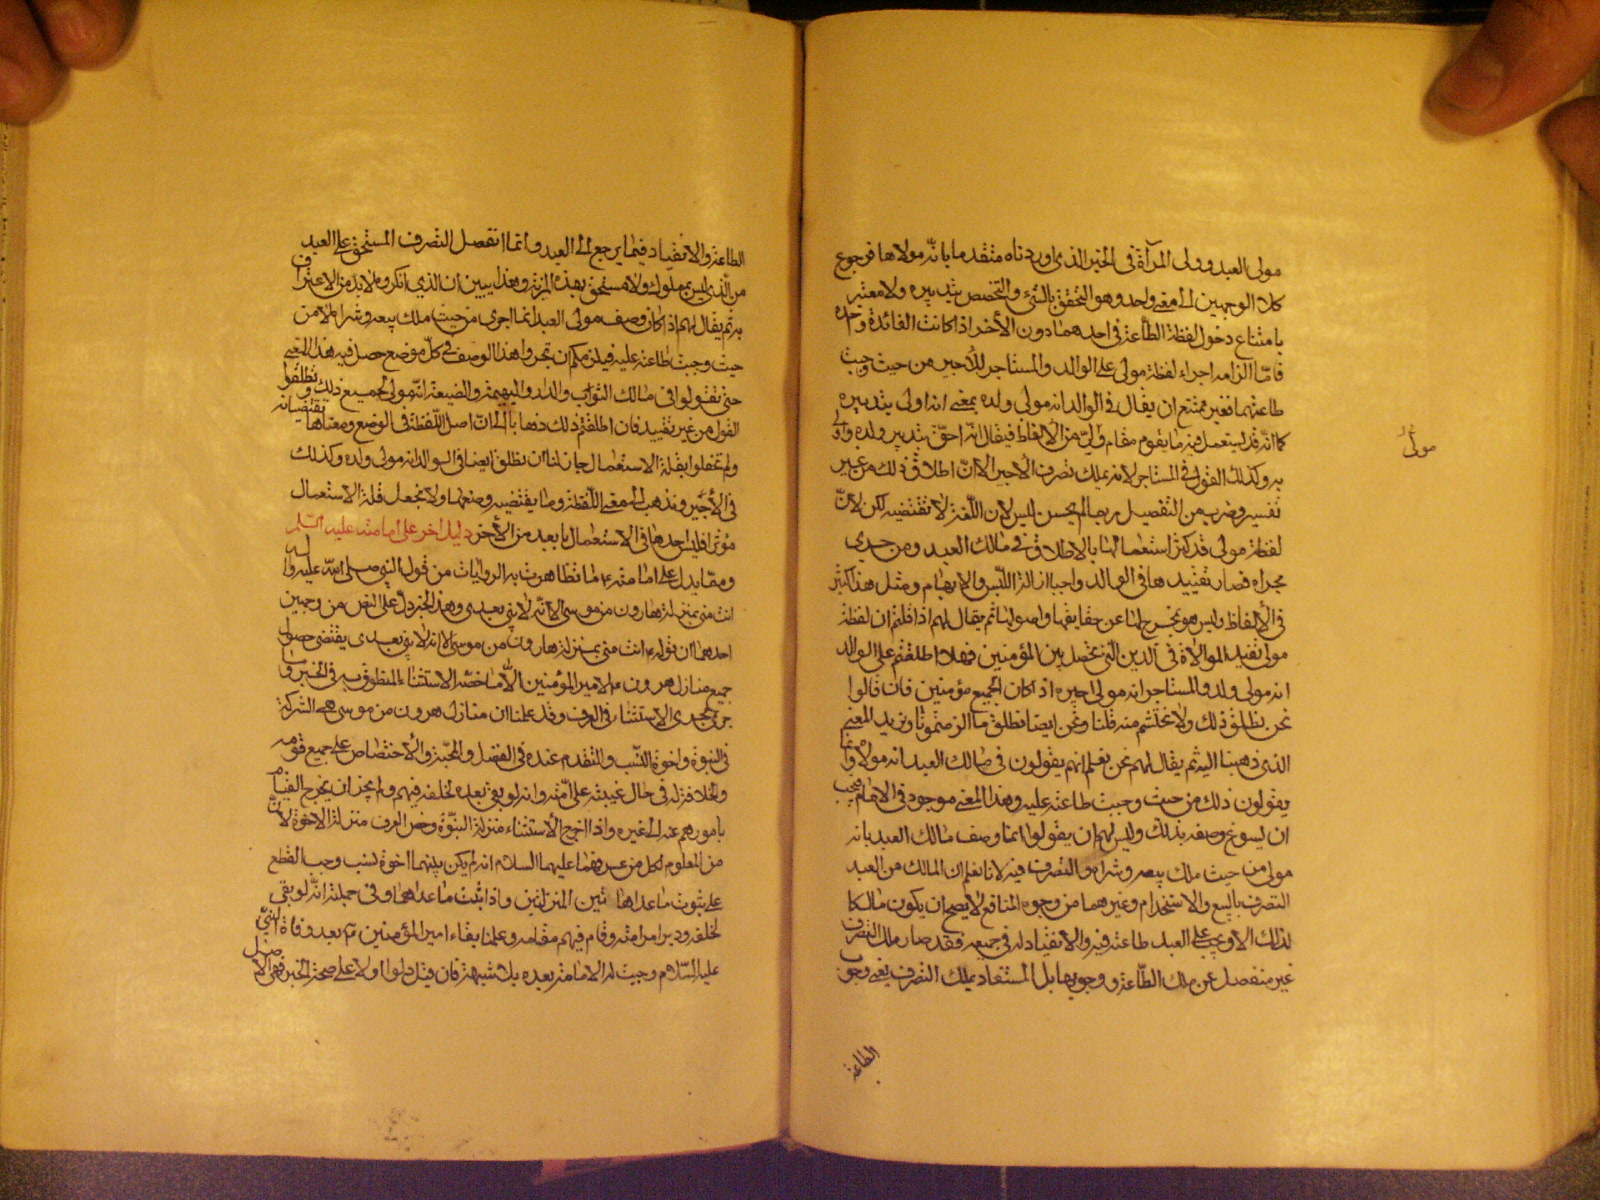 مولى العبد وولى المرأة في الخبر الذى اوردناه متقدما بانه مولاها فرجوع
كلا الوجهين الى معنى واحد وهو التحقق بالشيء والتخصص بتدبيره ولا معتبر
بامتناع دخول لفظة الطاعة في احدهما دون الآخر اذا كانت الفائدة واحدة
فامّا الزامه اجراء لفظة مولى على الوالد والمستاجر للأجير من حيث وجبت
طاعتهما فغير ممتنع ان يقال في الوالد انه مولى ولده بمعنى انه اولى بتدبيره
كما انّه قد يستعمل فيه ما يقوم مقام مولى من الألفاظ فيقال انّه احقّ بتدبير ولده واولى
به وكذلك القول في المستاجر لانه يملك تصرف الأجير الا انّ اطلاق ذلك من غير
تفسير وضرب من التفصيل ربما لم يحسن ليس لان اللّغة لا تقتضيه لكن لانّ
لفظة مولى قد كثر استعمالها بالاطلاق في مالك العبد ومن جرى
مجراه فصار تقييدها في الوالد واجبا ازالة اللّبس والايهام ومثل هذا كثير
في الألفاظ وليس هو بمخرج لها عن حقايقها واصولها ثم يقال لهم اذا قلتم ان لفظة
مولى تفيد الموالاة في الدين التي تحصل بين المؤمنين فهلا اطلقتم على الوالد
انه مولى ولده والمستاجر انه مولى اجيره اذا كان الجميع مؤمنين فان قالوا
نحن نطلق ذلك ولا نحتشم منه قلنا ونحن ايضا نطلق ما الزمتموناه ونريد المعنى
الذى ذهبنا اليه ثم يقال لهم نحن نعلم انهم يقولون في مالك العبد انه مولاه وانما
يقولون ذلك من حيث وجبت طاعته عليه وهذا المعنى موجود في الامام فيجب
ان يسوغ وصفه بذلك وليس لهم ان يقولوا انما وصف مالك العبد بانه
مولى من حيث ملك بيعه وشراه والتصرف فيه لانا نعلم ان المالك من العبد
التصرف بالبيع والاستخدام وغيرهما من وجوه المنافع لا يصح ان يكون مالكا
لذلك الا ويجب على العبد طاعته فيه والانقياد له في جميعه فقد صار ملك التصرف
غير منفصل عن ملك الطّاعة ووجوبها بل المستفاد بملك التصرف يعنى وجوب
مولى
الطاعة
الطاعة والانقياد فيما يرجع الى العبد وانما انفصل التصرف المستحق على العبد
من الّذى ليس بمملوك ولا مستحق بهذه المزية وهذا يبين ان الذي انكروه لا بد من الاعتراف
به ثم يقال لهم اذا كان وصف مولى العبد انما اجرى من حيث ملك بيعه وشراه لا من
حيث وجبت طاعته عليه فيلزمكم ان تجروا هذا الوصف في كلّ موضع حصل فيه هذا المعنى
حتى تقولوا في مالك الثواب والدار والبهيمة والضيعة انّه مولى لجميع ذلك وتطلقوا
القول من غير تقييد فان اطلقتم ذلك ذهابا الى انّ اصل اللّفظة في الوضع ومعناها يقتضيانه
ولم تحفلوا بقلة الاستعمال جاز لنا ان نطلق ايضا في الوالد انه مولى ولده وكذلك
في الأجير ونذهب الى معنى اللّفظة وما يقتضيه وضعها ولا نجعل قلة الاستعمال
مؤثرا فليس احدهما في الاستعمال بابعد من الآخر دليل اخر على امامته عليه السّلم
ومما يدل على امامته ع ما تظاهرت به الروايات من قول النبي صلى الله عليه واله
انت منى بمنزلة هارون من موسى الا انّه لا نبى بعدى وهذا الخبر دلّ على النص من وجهين
احدهما ان قوله ع انت منى بمنزلة هارون من موسى الا انه لا نبى بعدى يقتضى حصول
جميع منازل هرون ع لامير المؤمنين الّا ما خصّه الاستثناء المنطوق به في الخبر وما
جرى مجرى الاستثناء في العرف وقد علمنا ان منازل هرون من موسى هى الشركة
في النبوة واخوة النسب والتقدم عنده في الفضل والمحبة والاختصاص على جميع قومه
والخلافة له في حال غيبته على امّته وانه لو بقى بعده لخلفه فيهم ولم يجز ان يخرج القيام
بامورهم عنه الى غيره واذا اخرج الاستثناء منزلة النبّوة وخص العرف منزلة الاخوة لانّ
من المعلوم لكل من عرفهما عليهما السلام انه لم يكن بينهما اخوة نسب وجب القطع
على ثبوت ما عداها تين المنزلتين واذا ثبت ما عداهما وفى جملته انّه لو بقى
لخلفه ودبر امر امته وقام فيهم مقامه وعلمنا بقاء امير المؤمنين ع بعد وفاة النبّي
عليه السّلام وجبت له الامامة بعده بلا شبهة فان قيل دلوا اولا على صحة الخبر فهو الاصل